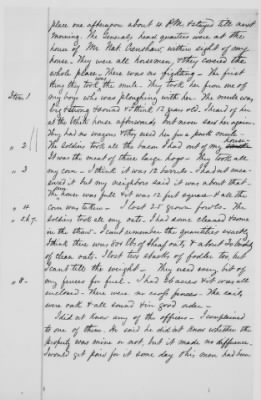 place one afternoon about 4 P.M. & stayed till next
morning. The Generals head quarters were at the
house of Mr. Nat Crenshaw, within sight of my
house. They were all horsemen, & they covered the
whole place. There was no fighting - The first
Item 1. thing they took was the mule. They took her from one of
my boys who was ploughing with her. The mule was
big & strong & sound & I think 12 years old. I heard of her
at the White house afterwards, but never saw her again.
They had no wagons & they used her for a pack mule.
" 2 The soldiers took all the bacon I had out of my house.
It was the meat of three large hogs. They took all
" 3 my corn - I think it was 12 barrels. I had not meas-
ured it but my neighbors said it was about that.
My barn was full & it was 12 feet square & all the
" 4. corn was taken - I lost 25 grown fowls. The
" 2 & 7. soldiers took all my oats. I had some cleaned & some
in the straw. I cant remember the quantities exactly
I think there was 800 lbs of sheaf oats & about 20 bushels
of clean oats. I lost two stacks of fodder too but
I cant tell the weight - They used every bit of
" 8 - my fences for fuel. I had 26 acres & it was all
enclosed - there were no cross fences. The rails
were oak & all sound & in good order.
I did not know any of the officers - I complained
to one of them. He said he did not know whether the
property was mine or not, but it made no difference.
I would get paid for it some day this man had been